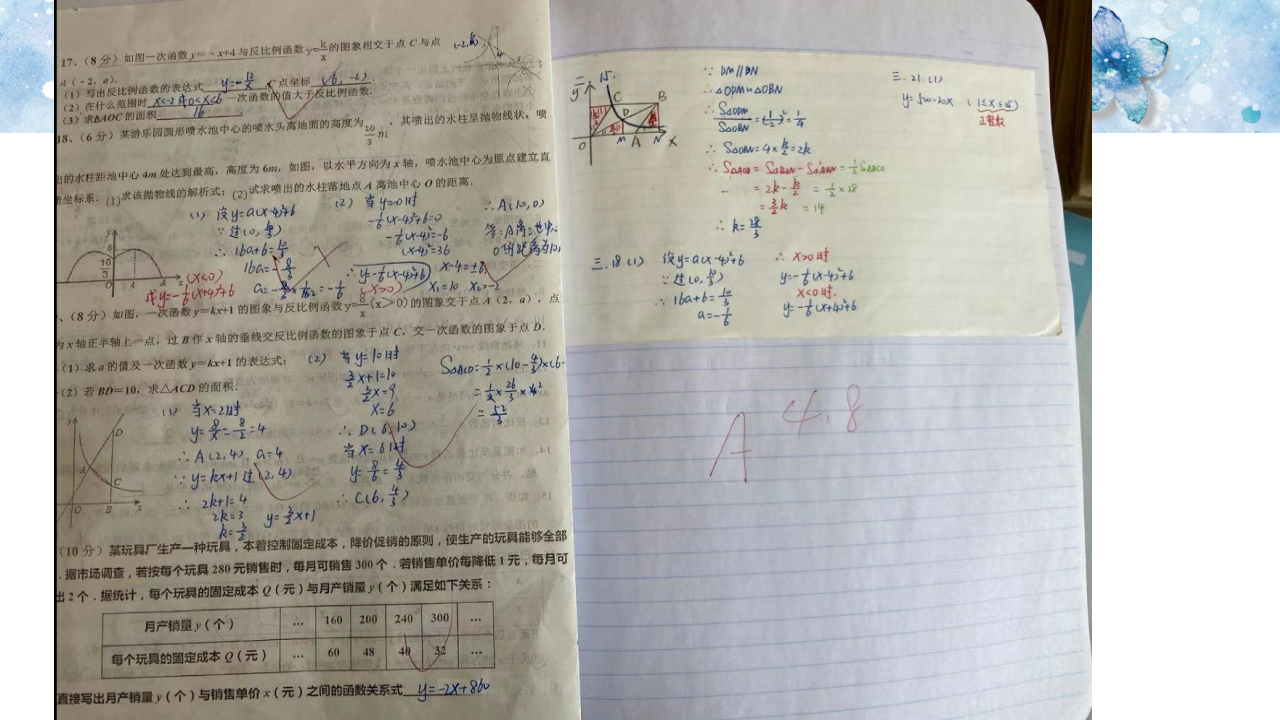 17、(8 分) 如图一次函数 y= -x+4 与反比例函数 y=k/x 的图象相交于点 C 与点
A (-2, a).
(1) 写出反比例函数的表达式 y=-12/x C点坐标 (6, -2).
(2) 在什么范围时 x<-2或0<x<6 一次函数的值大于反比例函数.
(3) 求△AOC 的面积 16 .
18、(6 分) 某游乐园圆形喷水池中心的喷水头离地面的高度为 10/3 m, 其喷出的水柱呈抛物线状, 喷
出的水柱距池中心 4m 处达到最高, 高度为 6m, 如图, 以水平方向为 x 轴, 喷水池中心为原点建立直
坐标系. (1) 求该抛物线的解析式; (2) 试求喷出的水柱落地点 A 离池中心 O 的距离.
(1) 设y=a(x-4)²+6
∵过(0, 10/3)
∴16a+6=10/3
16a=-8/3
∴y=-1/6(x-4)²+6
(x>0)
(x<0)
y=-1/6(x+4)²+6
(2) 当y=0时
-1/6(x-4)²+6=0
-1/6(x-4)²=-6
(x-4)²=36
x-4=±6
x₁=10 x₂=-2
∴A(10,0)
y
6
10/3
O
4
x
(8 分) 如图, 一次函数 y=kx+1 的图象与反比例函数 y=8/x (x>0) 的图象交于点 A (2, a), 点
为 x 轴正半轴上一点, 过 B 作 x 轴的垂线交反比例函数的图象于点 C, 交一次函数的图象于点 D.
(1) 求 a 的值及一次函数 y=kx+1 的表达式;
(2) 若 BD=10, 求△ACD 的面积.
(1) 当x=2时
y=8/x=8/2=4
∴A(2,4), a=4
∵y=kx+1过(2,4)
∴2k+1=4
2k=3
k=3/2 y=3/2x+1
(2) 当y=10时
3/2x+1=10
3/2x=9
x=6
∴D(6,10)
当x=6时
y=8/6=4/3
∴C(6, 4/3)
S△ACD=1/2×(10-4/3)×(6-
=1/2×26/3×4
=52/3
y
D
A
C
O
B
x
(10 分) 某玩具厂生产一种玩具, 本着控制固定成本, 降价促销的原则, 使生产的玩具能够全部
. 据市场调查, 若按每个玩具 280 元销售时, 每月可销售 300 个. 若销售单价每降低 1 元, 每月可
出 2 个. 据统计, 每个玩具的固定成本 Q (元) 与月产销量 y (个) 满足如下关系:
月产销量 y (个) … 160 200 240 300 …
每个玩具的固定成本 Q (元) … 60 48 40 32 …
直接写出月产销量 y (个) 与销售单价 x (元) 之间的函数关系式 y=-2x+860
二、15.
y
C
B
D
O
M
A
N
x
∵DM∥BN
∴△ODM∽△OBN
∴S△ODM/S△OBN=(1/2)²=1/4
∴S△OBN=4×k/2=2k
∴S△AOB=S△OBN-S△ABN=1/2S▱ABCO
=2k-k/2=1/2×28
=3/2k=14
∴k=28/3
三、18 (1) 设y=a(x-4)²+6
∵过(0, 10/3)
∴16a+6=10/3
a=-1/6
∴x>0时
y=-1/6(x-4)²+6
x<0时.
y=-1/6(x+4)²+6
三、21. (1)
y=500-20x (1≤x≤15)
正整数
A 4.8